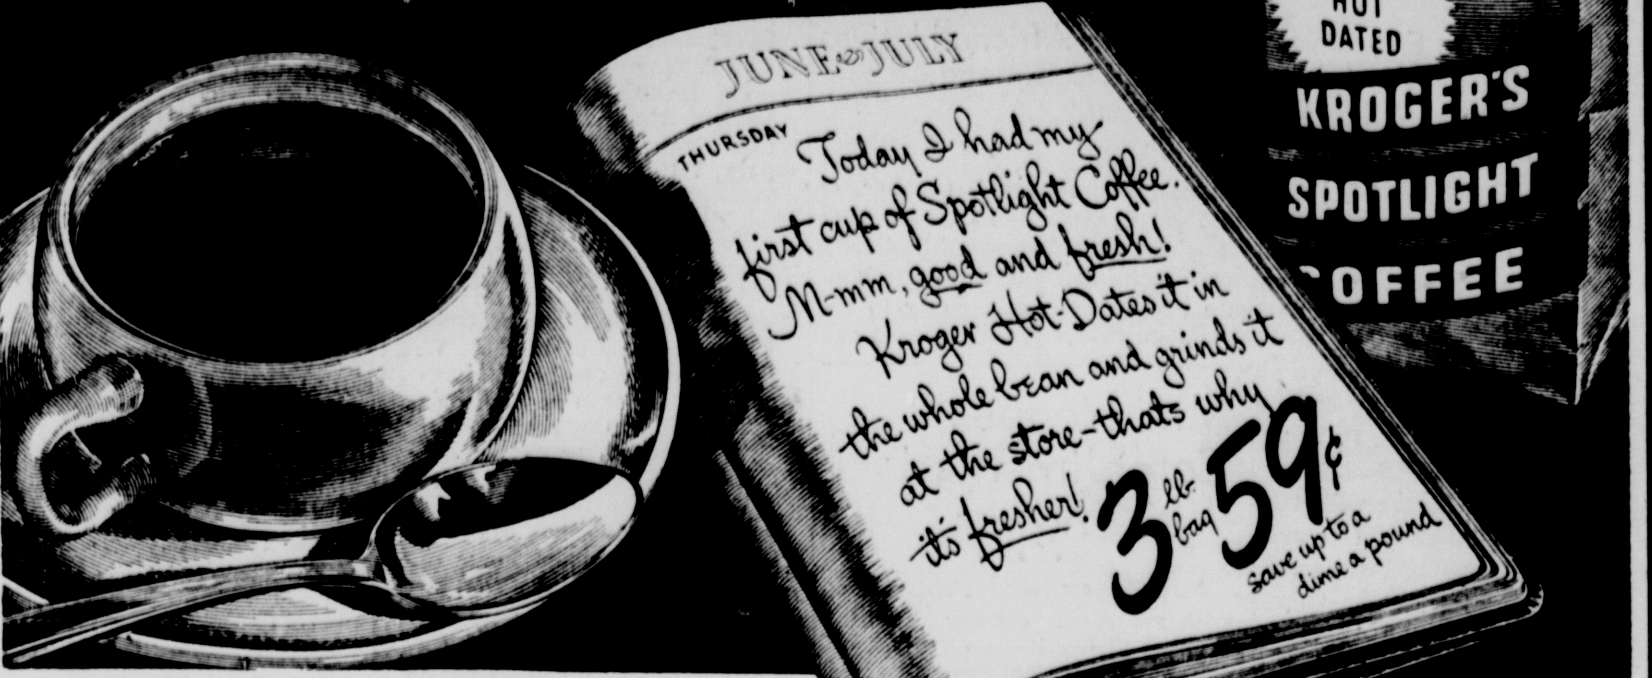 JUNE & JULY
THURSDAY
Today I had my
first cup of Spotlight Coffee.
M-mm, good and fresh!
Kroger Hot-Dates it in
the whole bean and grinds it
at the store-thats why
it's fresher!
3 lb. bag 59¢
save up to a
dime a pound
HOT
DATED
KROGER'S
SPOTLIGHT
COFFEE